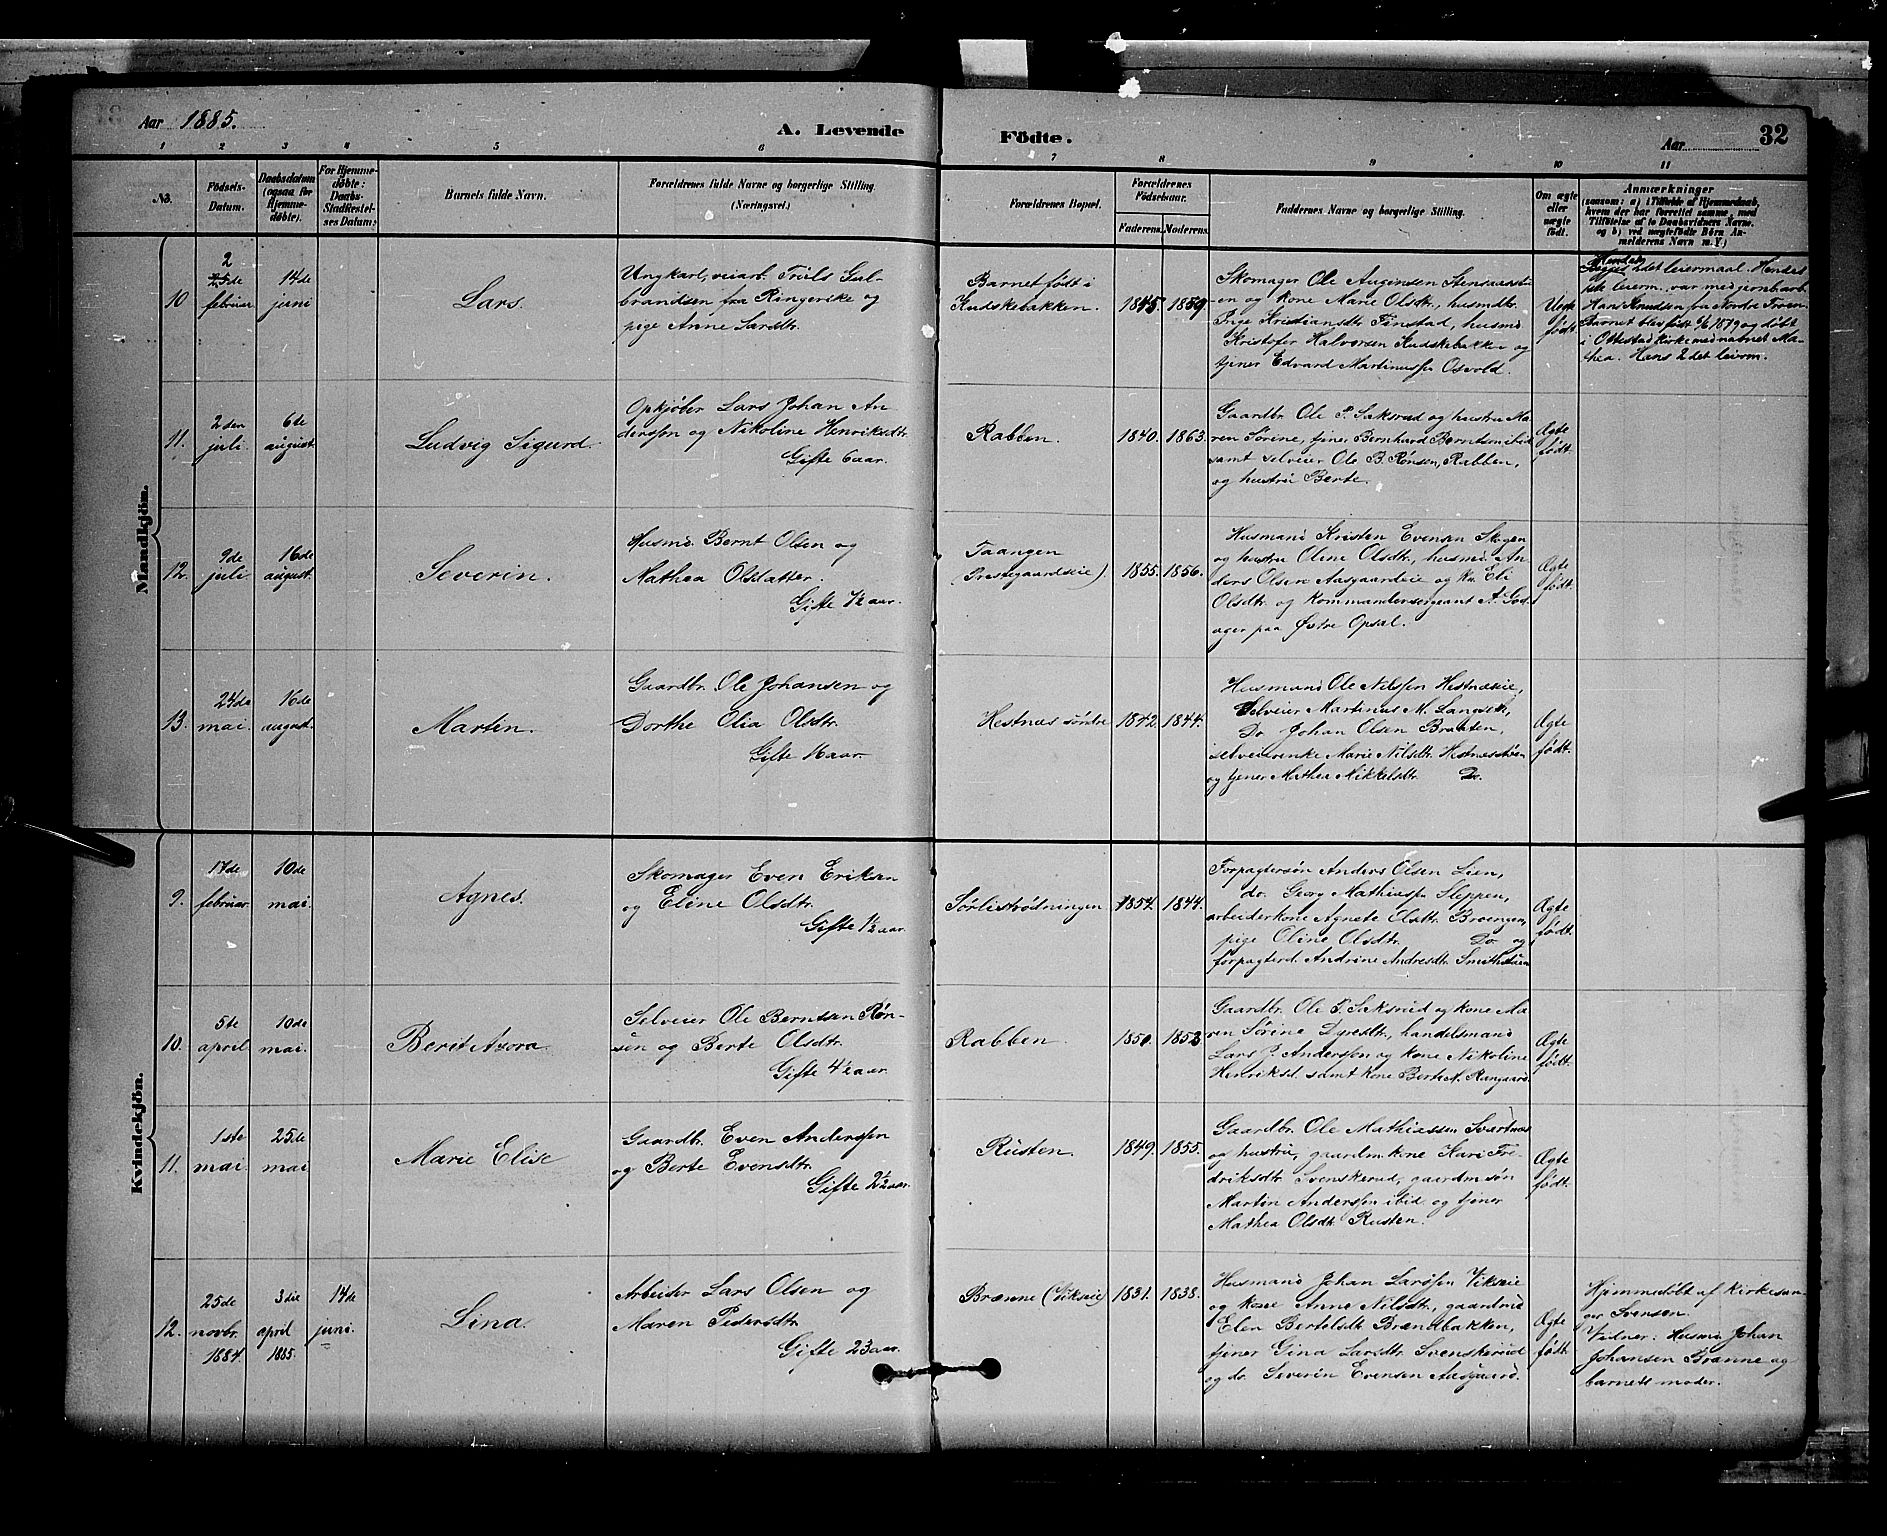 Aar 1885.
A. Levende
Födte.
Aar
32
1 2 3 4 5 6 7 8 9 10 11
No.
Födsels-
Datum.
Daabsdatum
(ogsaa for
Hjemme-
döbte).
For Hjemme-
döbte:
Daabs-
Stadfæstel-
ses Datum:
Barnets fulde Navn.
Forældrenes fulde Navne og borgerlige Stilling.
(Næringsvei.)
Forældrenes Bopæl.
Forældrenes
Födselsaar.
Faderens.
Moderens.
Faddernes Navne og borgerlige Stilling.
Om ægte
eller
uægte
födt.
Anmærkninger
(saasom: a) i Tilfælde af Hjemmedaab,
hvem der har forrettet samme, med
Tilföielse af to Daabsvidners Navne,
og b) ved uægtefödte Börn An-
melderens Navn m. V.)
Mandkjön.
10
2
februar
14de
juni
Lars.
Ungkarl, veiarb. Truls Gul-
brandsen fra Ringerike og
pige Anne Larsdtr.
Barnet født i
Kudskebakken.
1845.
1859.
Skomager Ole Augensen
en og kone Marie Olsdtr., husmdtr.
Inge Kristiansdtr. Finstad, husmd
Kristofer Halvorsen Kudskebakken og
tjener Edvard Martinussen Osvold.
Uægte
født
Hendes
2det leiermaal. Hendes
leierm. var med jernb.arb.
Hans Knudsen fra Nordre
Barnet blev født 6/6 1879 og døbt
i Ottestad kirke med navnet Ma-
thea. Hans 2det leierm.
11.
2den
juli
6te
august
Ludvig Sigurd.
Opkjøber Lars Johan An
derssen og Nikoline Henriksdtr.
Gifte 6 aar.
Rabben.
1840.
1863.
Gaardbr. Ole P. Saksrud og hustru Ma-
ren Sørine, tjener Bernhard Berntsen ibid
samt selveier Ole B. Rønsen, Rabben,
og hustru Berte.
Ægte
født.
12.
9de
juli
16de
august.
Severin.
Husmd. Bernt Olsen og
Mathea Olsdatter.
Gifte 7½ aar.
Taangen
(Prestegaardseie)
1855.
1856.
Husmand Kristen Evensen Skogen
og hustru Oline Olsdtr., husmd. An
ders Olsen Aasgaardeie og kn. Eli
Olsdtr. og Kommandersergeant A. God
ager paa Østre Opsal.
Ægte
født.
13.
24de
mai.
16de
august.
Martin.
Gaardbr. Ole Johansen og
Dorthe Olia Olsdtr.
Gifte 16 aar.
Hestnæs søndre
1842
1844.
Husmand Ole Nilssen Hestnæseie,
Selveier Martinus M. Langseth,
Do. Johan Olsen Braaten,
selveierenke Marie Nilsdtr. Hestnesstuen
og tjener Mathea Nikkelsdtr. Do.
Ægte
født.
Kvindekjön.
9.
17de
februar
10de
mai.
Agnes.
Skomager Even Eriksen
og Eline Olsdtr.
Gifte 1½ aar.
Sørlistrødningen
1854.
1844.
Forpagtersøn Anders Olsen Lien,
do. Georg Mathiassen Sleppen,
arbeiderkone Agnete Olsdtr. Broengen,
pige Oline Olsdtr. Do. og
forpagterd. Andrine Andresdtr. Smithstuen
Ægte
født.
10.
5te
april
10de
mai.
Berit Avora.
Selveier Ole Berntsen Røn-
sen og Berte Olsdtr.
Gifte 4½ aar.
Rabben.
1850.
1853
Gaardbr. Ole P. Saksrud og kone Ma
ren Sørine Dyresdtr., handelsmand
Lars J. Anderssen og kone Nikoline
Henriksd. samt kone Berte A. Rangaard.
Ægte
født.
11.
1ste
mai
25de
mai
Marie Elise
Gaardbr. Even Anderssen
og Berte Evensdtr.
Gifte 2½ aar.
Rusten.
1849.
1855.
Gaardbr. Ole Mathiassen Svartnæs
og hustru, gaardm.kone Kari Fre
driksdtr. Svenskerud, gaardm.søn
Martin Anderssen ibid. og tjener
Mathea Olsdtr. Rusten.
Ægte
født.
12.
25de
novbr.
1884.
3die
april
1885.
14de
juni.
Lina.
Arbeider Lars Olsen og
Maren Pedersdtr.
Gifte 23 aar.
Brænne (Vikseie)
1831.
1838.
Husmand Johan Larssen Vikseie
og kone Anne Nilsdtr., gaardmd
Elen Bertelsdtr. Brændbakken,
tjener Gina Larsdtr. Svenskerud
og do. Severin Evensen Aasgaard.
Ægte
født.
Hjemmedøbt af kirkesan-
ger Svensen.
Vidner: Husmd. Johan
Johansen Brænne og
barnets moder.